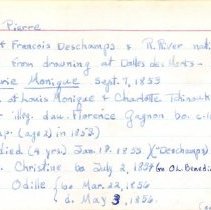 Pierre
Francois Deschamps & R. River nati
from drowning at Dalles des Morts -
rie Monique Sept. 7, 1853
Louis Monique & Charlotte Tchinouk
illeg. dau. Florence Gagnon bo. c-18
ap. (age 2) in 1853)
died (4 yrs). Jan. 19. 1855 ("Deschamps)
Christine bo July 2, 1854 (bo O.L. Benedic
Odille bo Mar. 22, 1856
d. May 3, 1856.